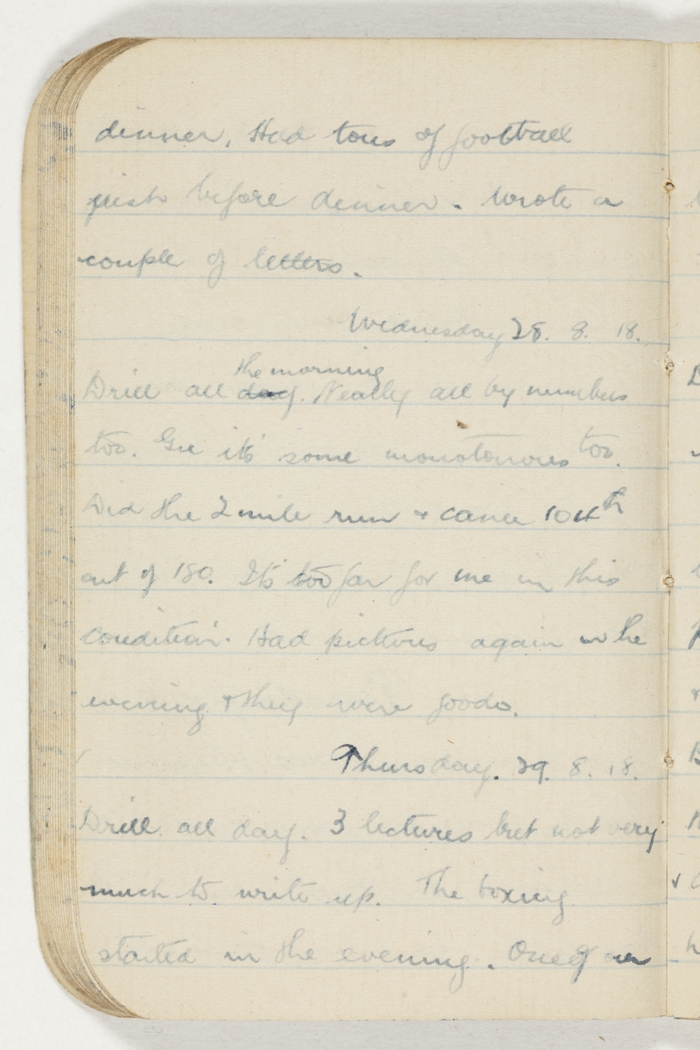 dinner. Had tons of football
just before dinner. Wrote a
couple of letters.
Wednesday 28. 8. 18.
the morning
Drill all day. Neatly all by numbers
too. Gee it's some monotonous too.
Did the 2 mile run & came 104th
out of 180. It's too far for me in this
condition. Had pictures again in the
evening & they were goodo.
Thursday. 29. 8. 18.
Drill all day. 3 lectures but not very
much to write up. The boxing
started in the evening. One of our